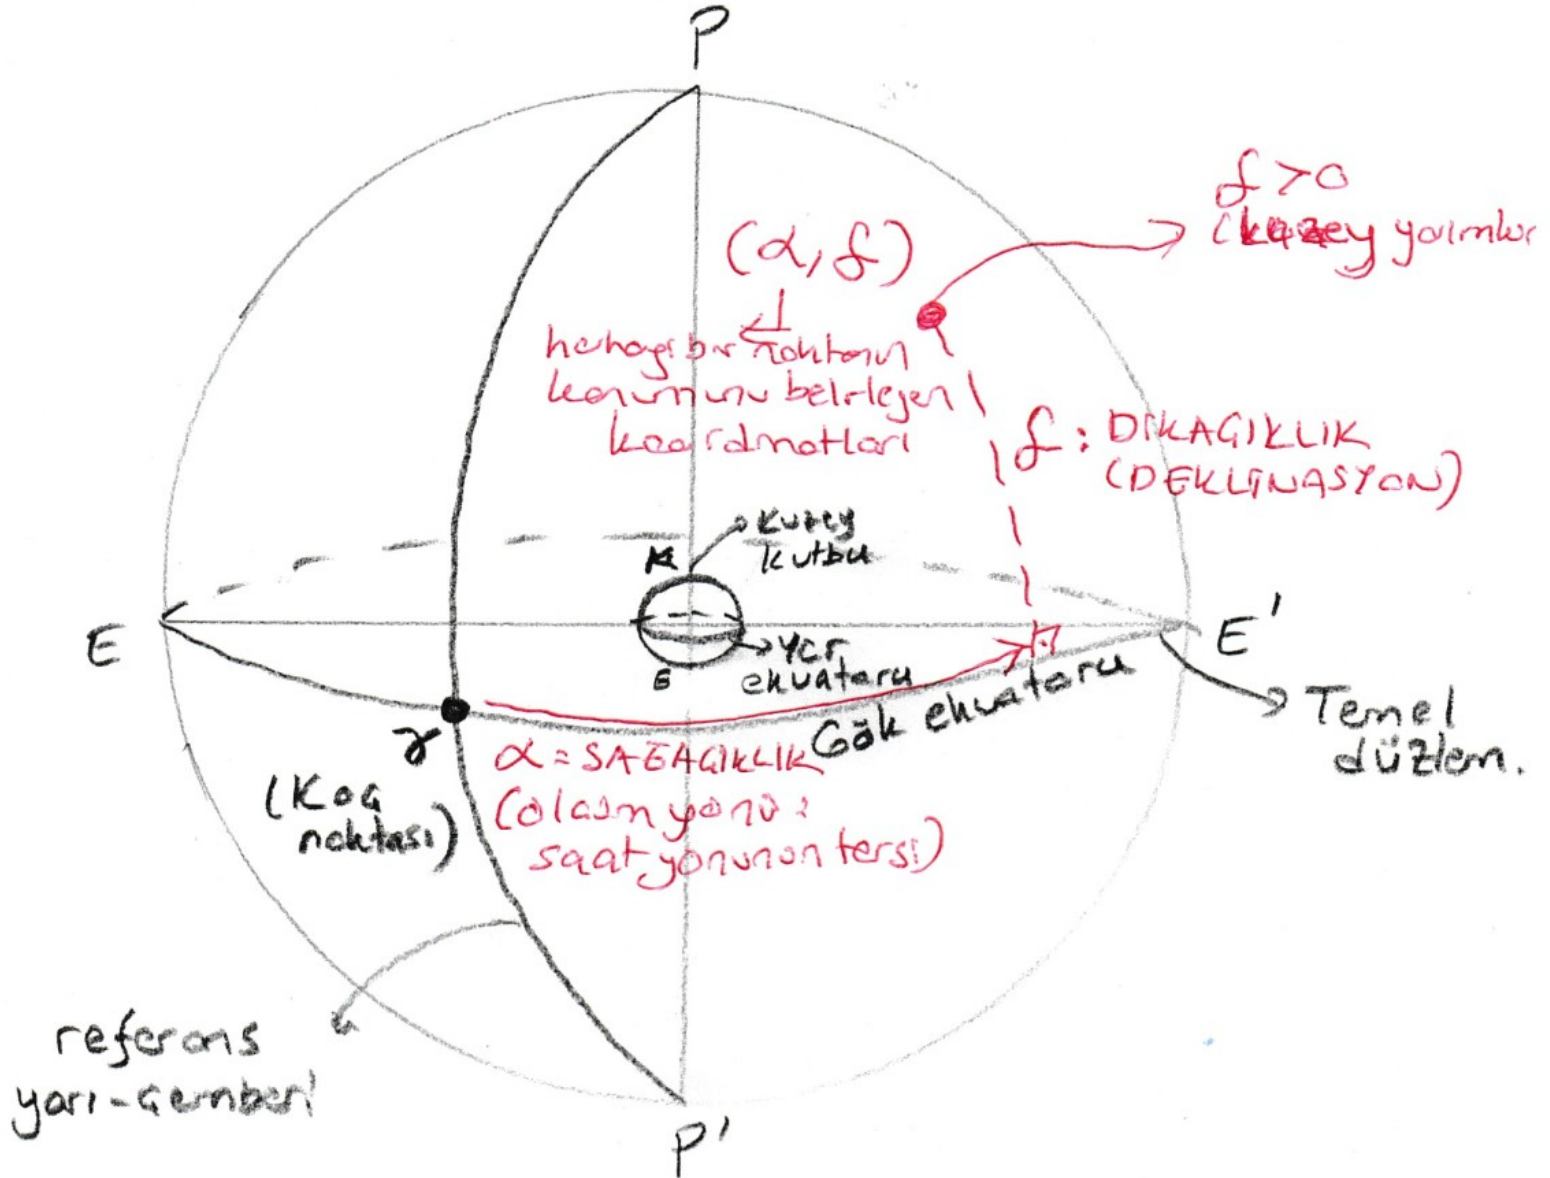 P
δ > 0
(kuzey yarımkür
(α, δ)
herhangi bir noktanın
konumunu belirleyen
koordinatları
δ : DİKAÇIKLIK
(DEKLİNASYON)
K
kuzey
kutbu
E
E'
yer
ekvatoru
E
Gök ekvatoru
Temel
düzlem.
γ
(Koç
noktası)
α = SAĞAÇIKLIK
(ölçüm yönü :
saat yönünün tersi)
referans
yarı-çemberi
P'